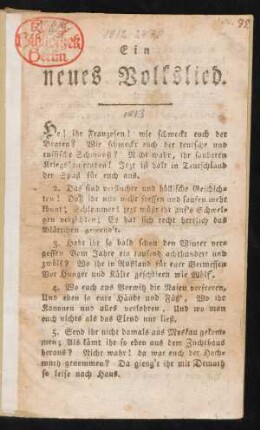 Ein
neues Volkslied.
1813
He! ihr Franzosen! wie schmeckt euch der
Braten? Wie schmeckt euch der teutsche und
russische Schmauß? Nicht wahr, ihr saubern
Jezt ist halt in Teutschland
der Spaß für euch aus.
2. Das sind verfluchte und höllische Geschich-
ten! Daß ihr nun nicht fressen und saufen mehr
könnt; Schlimmer! jezt müßt ihr
Es hat sich recht herrlich das
Blättchen gewend't.
3. Habt ihr so bald schon den Winter ver-
gessen Vom Jahre ein tausend achthundert und
zwölf? Wo ihr in Rußland für eure Vermessen
Vor Hunger und Kälte geschrieen wie Wölf.
4. Wo euch aus Vorwitz die Nasen verfroren,
Und eben so eure Hände und Füß', Wo ihr
Kanonen und alles verlohren, Und wo man
euch nichts als das Elend nur ließ.
5. Seyd ihr nicht damals aus Moskau gekom-
men; Als kämt ihr so eben aus dem Zuchthaus
heraus? Nicht wahr! da war euch der Hoch-
muth genommen? Da gieng't ihr mit Demuth
so leise nach Haus.